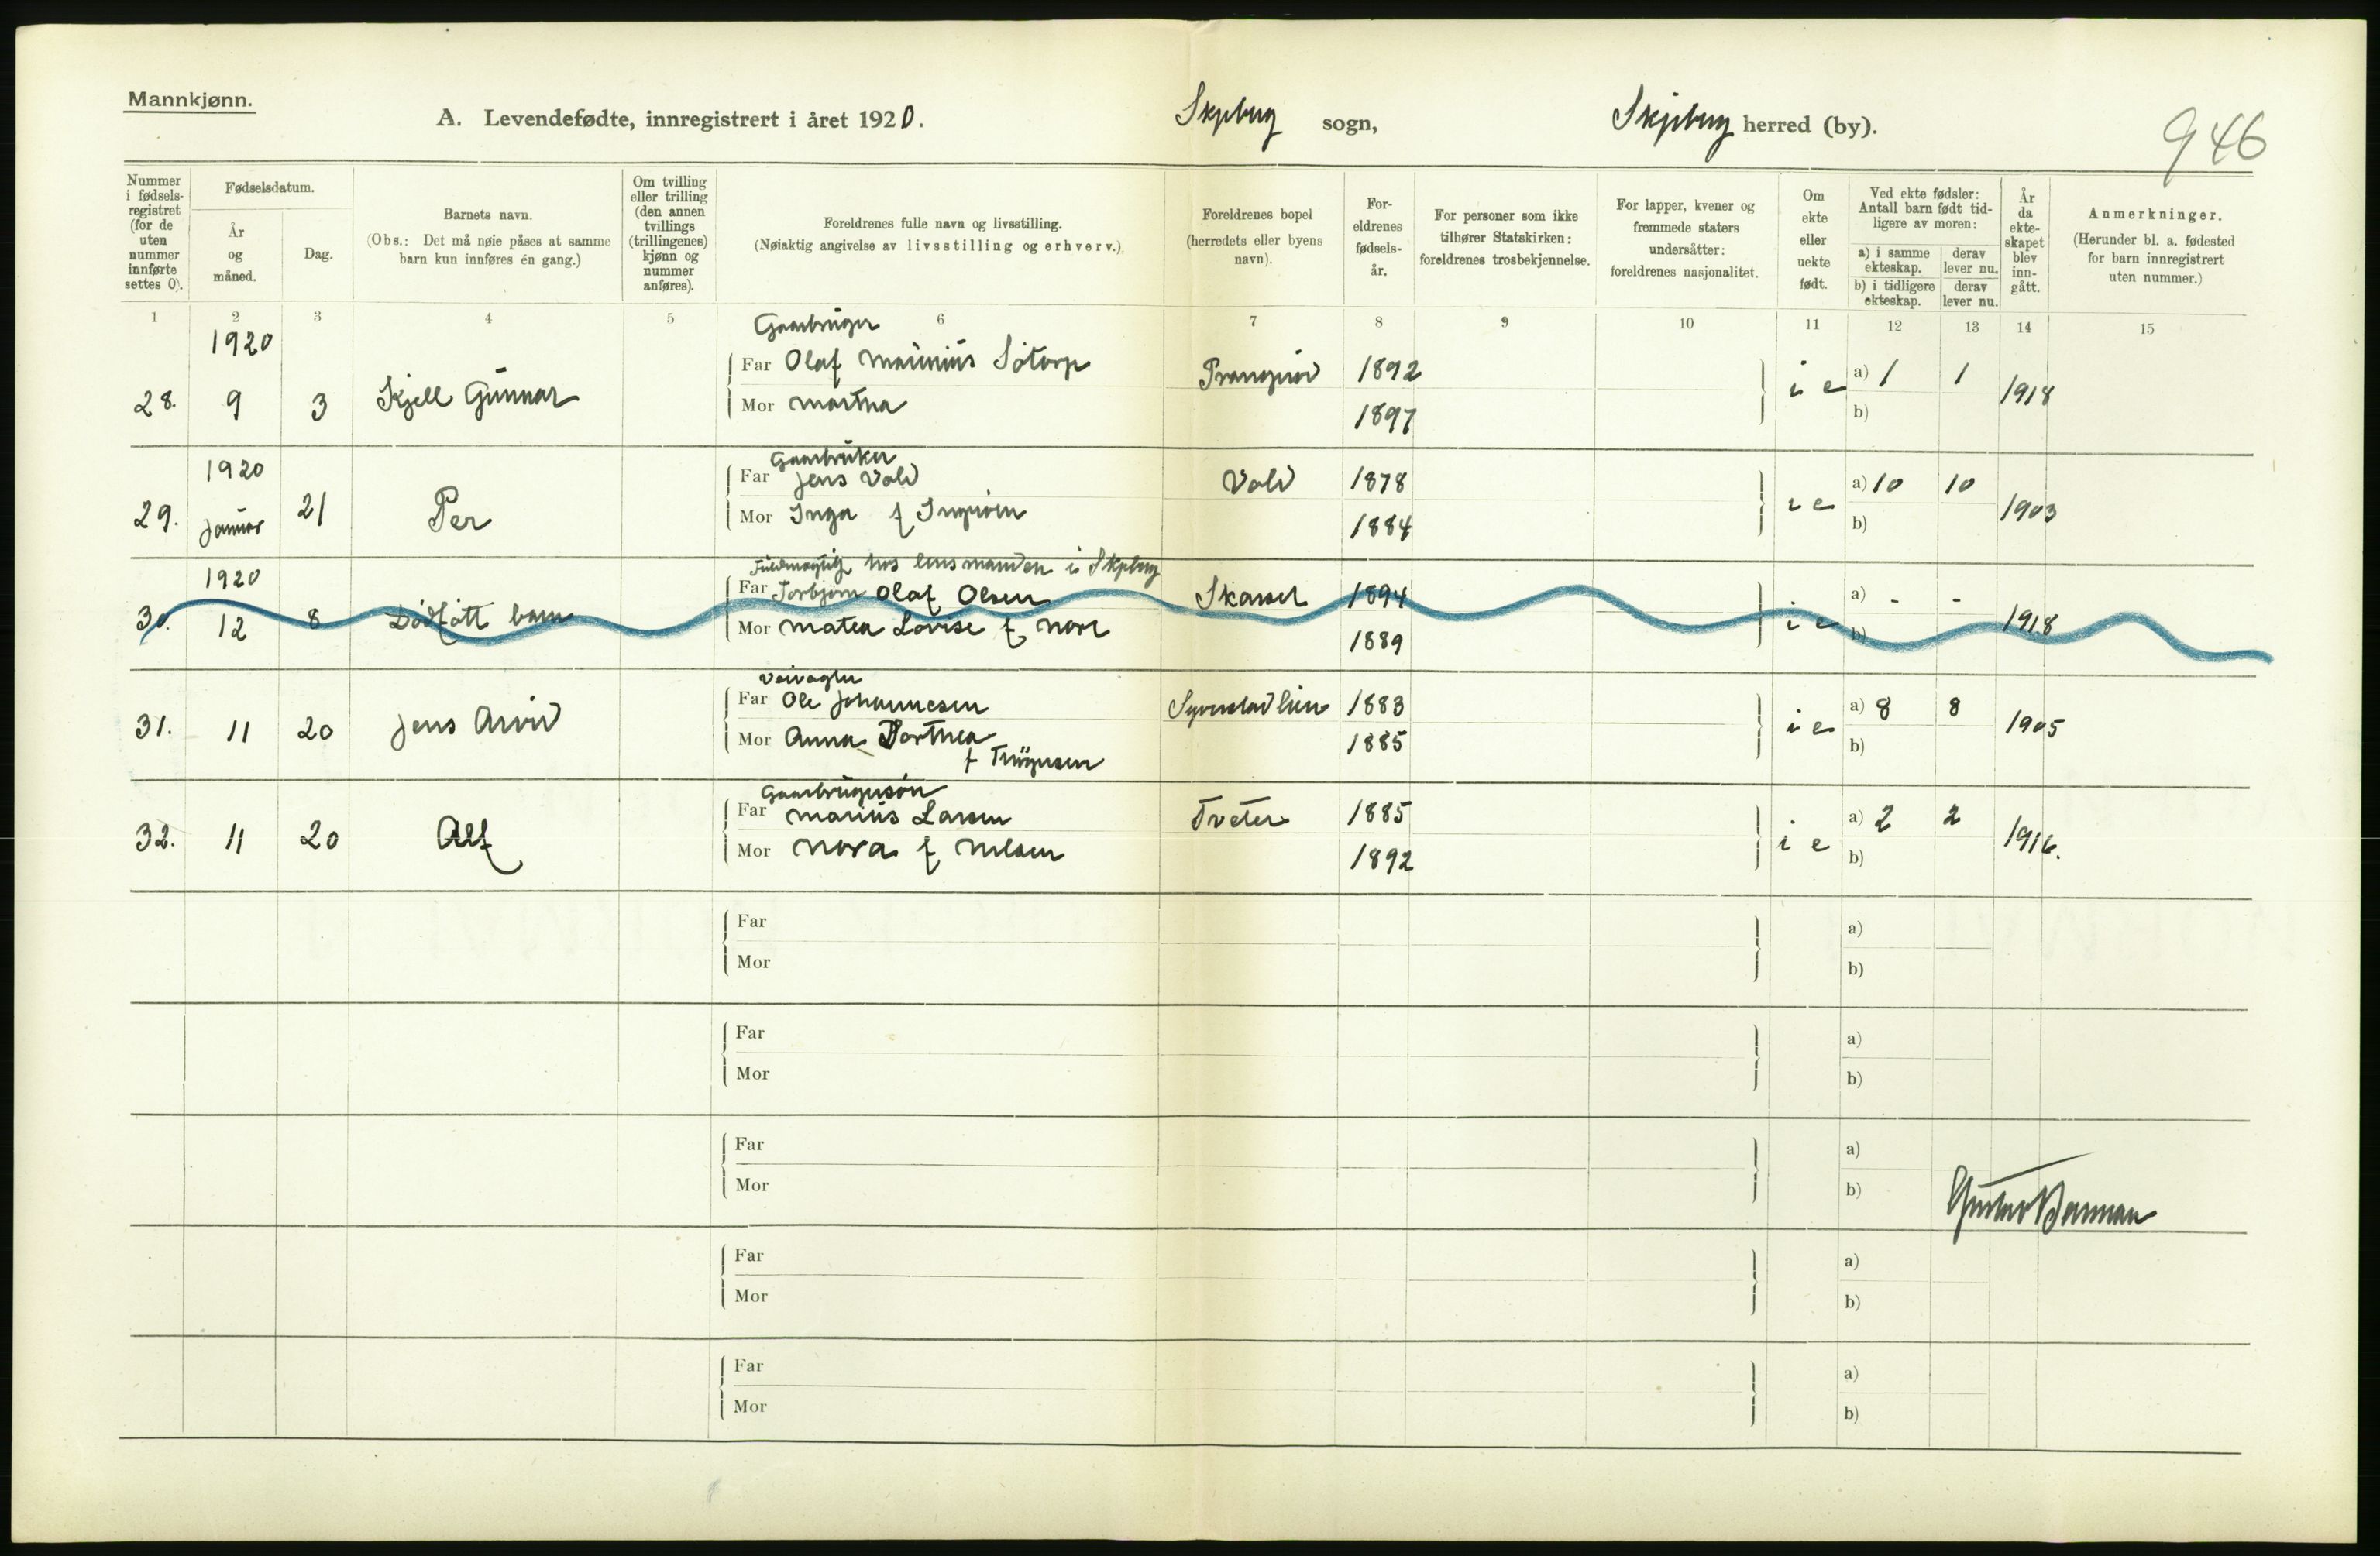 Mannkjønn.
A. Levendefødte, innregistrert i året 1920.
Skjeberg sogn,
Skjeberg herred (by).
946
Nummer i fødselsregistret (for de uten nummer innførte settes 0).
Fødselsdatum.
År og måned.
Dag.
Barnets navn.
(Obs.: Det må nøie påses at samme barn kun innføres én gang.)
Om tvilling eller trilling (den annen tvillings (trillingenes) kjønn og nummer anføres).
Foreldrenes fulle navn og livsstilling.
(Nøiaktig angivelse av livsstilling og erhverv.)
Foreldrenes bopel (herredets eller byens navn).
Foreldrenes fødselsår.
For personer som ikke tilhører Statskirken: foreldrenes trosbekjennelse.
For lapper, kvener og fremmede staters undersåtter: foreldrenes nasjonalitet.
Om ekte eller uekte født.
Ved ekte fødsler: Antall barn født tidligere av moren:
a) i samme ekteskap.
derav lever nu.
b) i tidligere ekteskap.
derav lever nu.
År da ekteskapet blev inngått.
Anmerkninger.
(Herunder bl. a. fødested for barn innregistrert uten nummer.)
1 2 3 4 5 6 7 8 9 10 11 12 13 14 15
1920
Gaarbruger
28. 9 3 Kjell Gunnar
Far Olaf
1892
Mor Martha
1897
i e
a) 1 1
b)
1918
1920
Gaarbruker
29. Januar 21 Per
Far Jens Vold
Vold 1878
Mor Inga f
1884
i e
a) 10 10
b)
1903
1920
hos lensmanden i Skjeberg
30. 12 8 Dødfött barn
Far Torbjørn Olaf Olsen
1894
Mor Matea Lovise f.
1889
i e
a) - -
b)
1918
31. 11 20 Jens Arvid
Far Ole Johannesen
1883
Mor Anna Dorthea
f
1885
i e
a) 8 8
b)
1905
Gaarbrugersön
32. 11 20 Alf
Far Marius Larsen
Tveter 1885
Mor Nora f Nilsen
1892
i e
a) 2 2
b)
1916.
Far
Mor
a)
b)
Far
Mor
a)
b)
Far
Mor
a)
b)
Far
Mor
a)
b)
Far
Mor
a)
b)